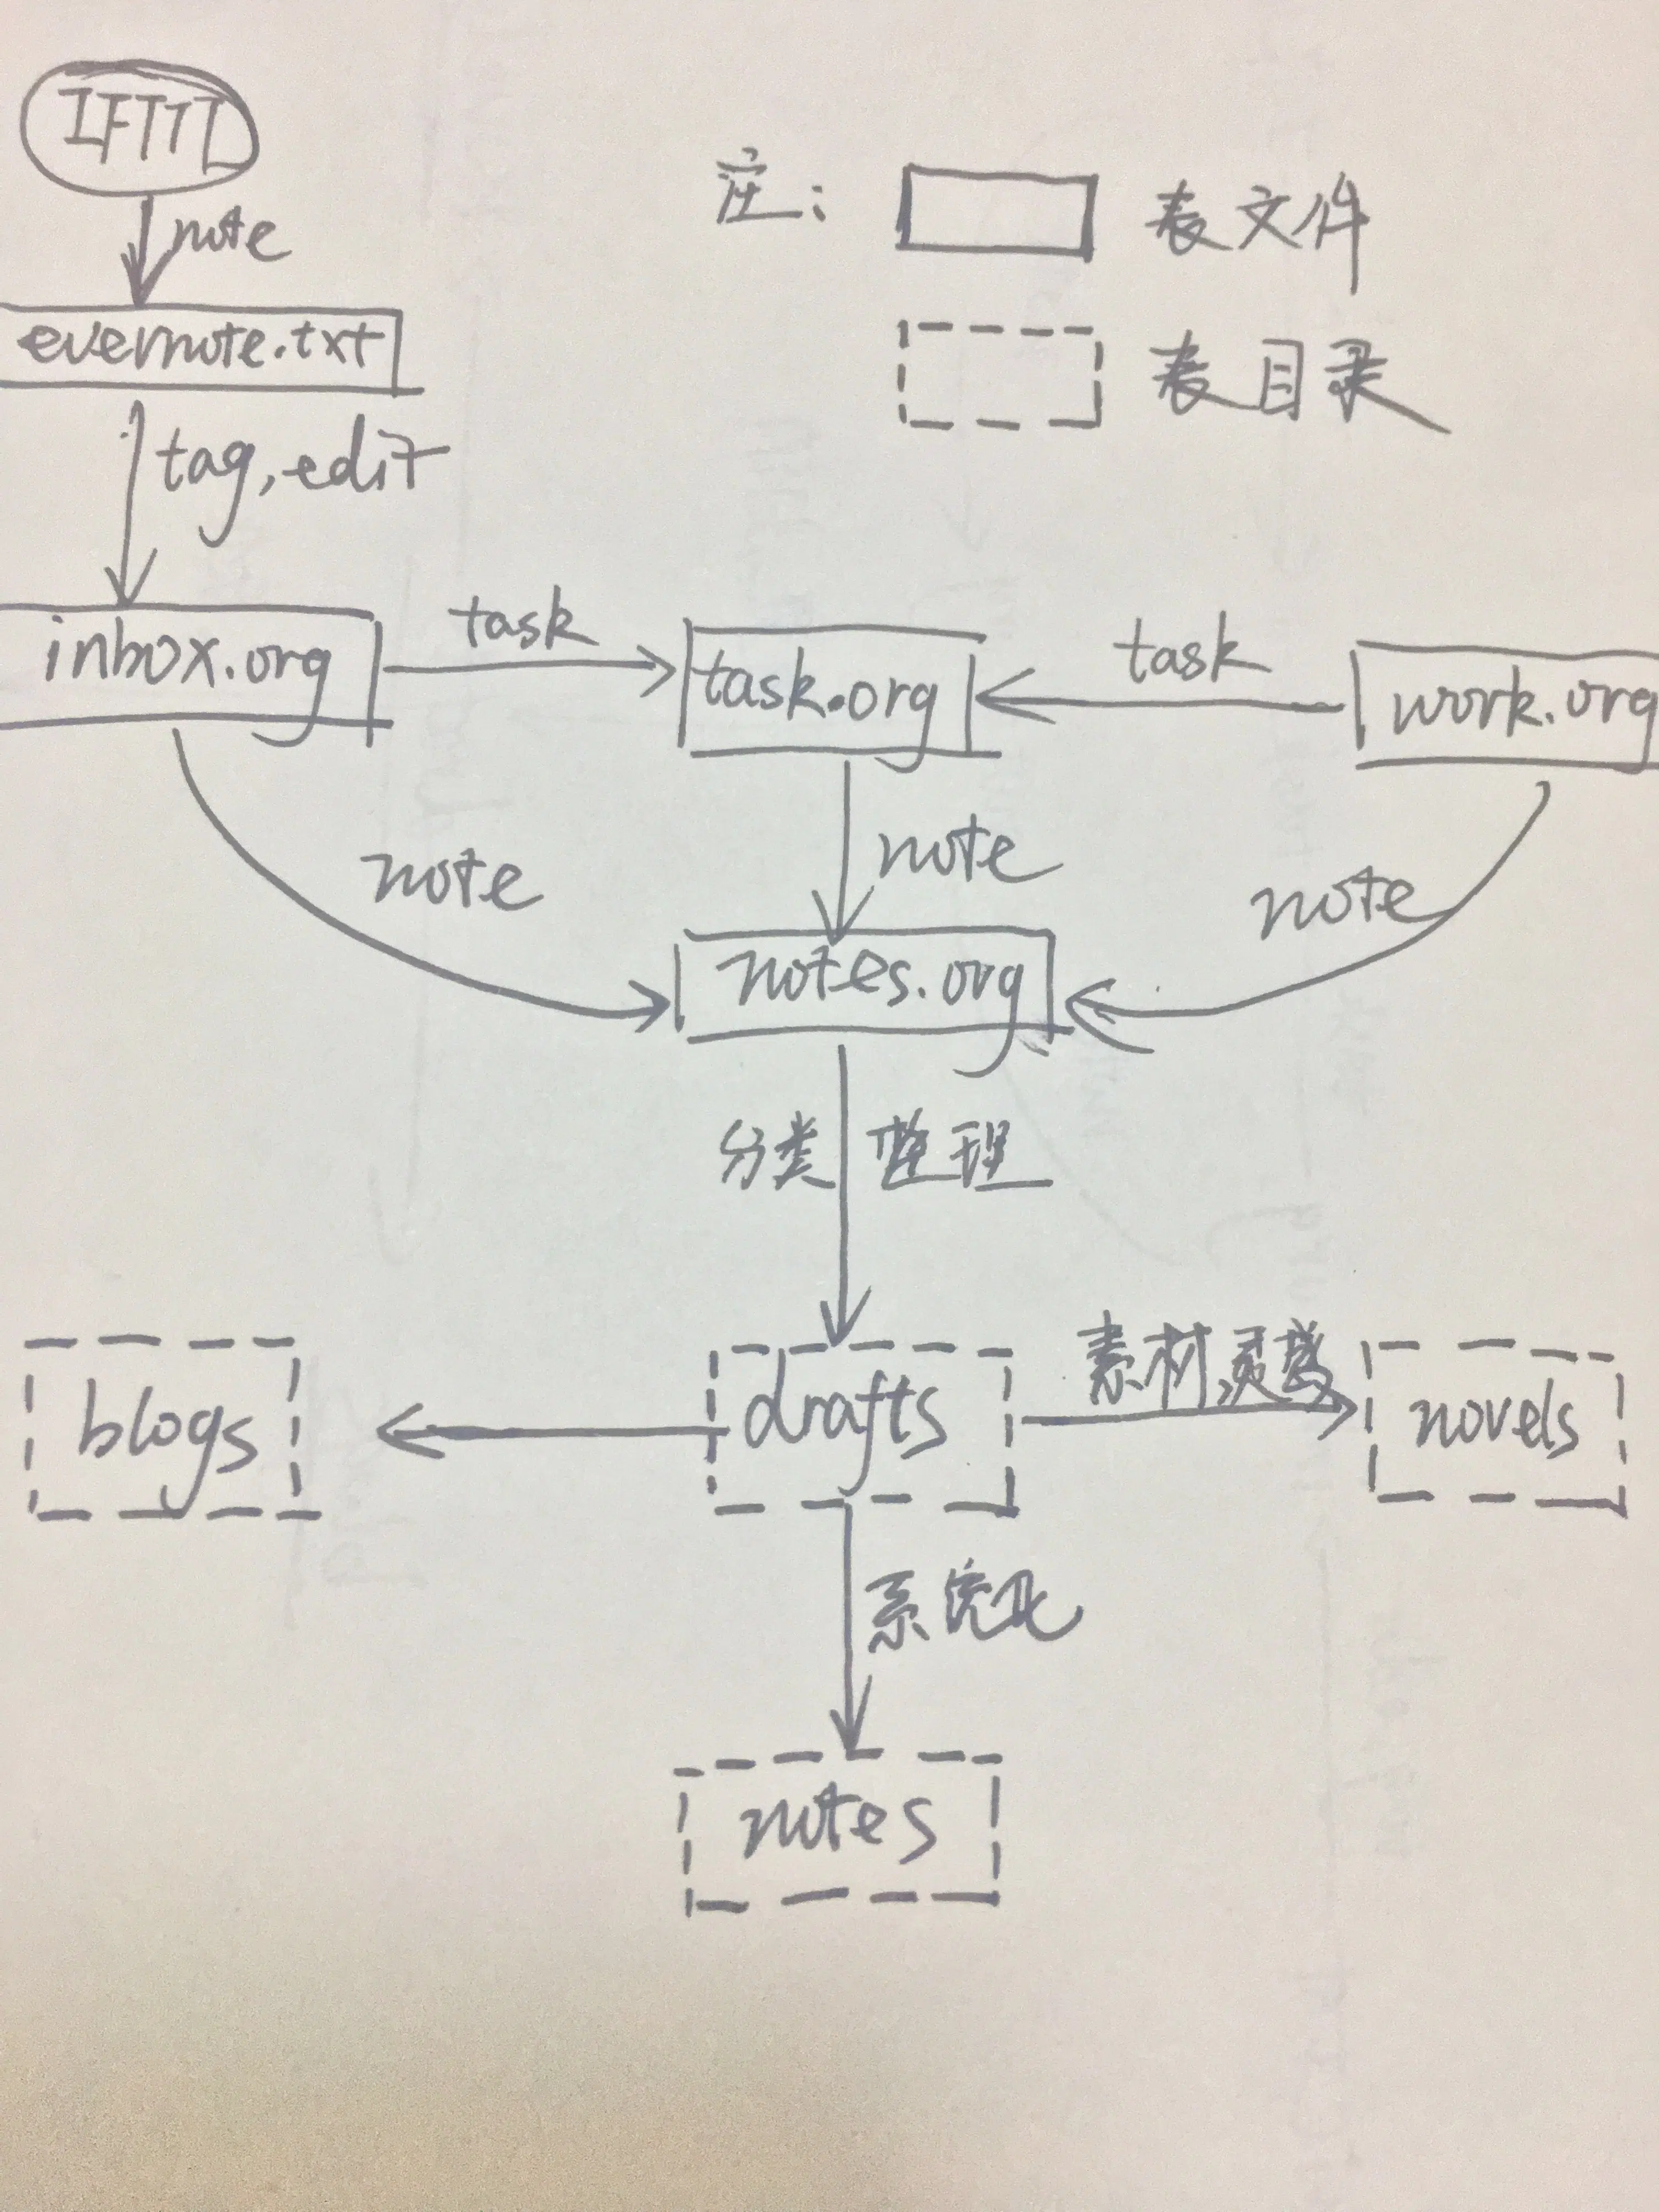 IFTTT
注： 表文件
note
evernote.txt
表目录
tag, edit
inbox.org
task
task.org
task
work.org
note
note
note
notes.org
分类 整理
blogs
drafts
素材,灵感
novels
系统化
notes